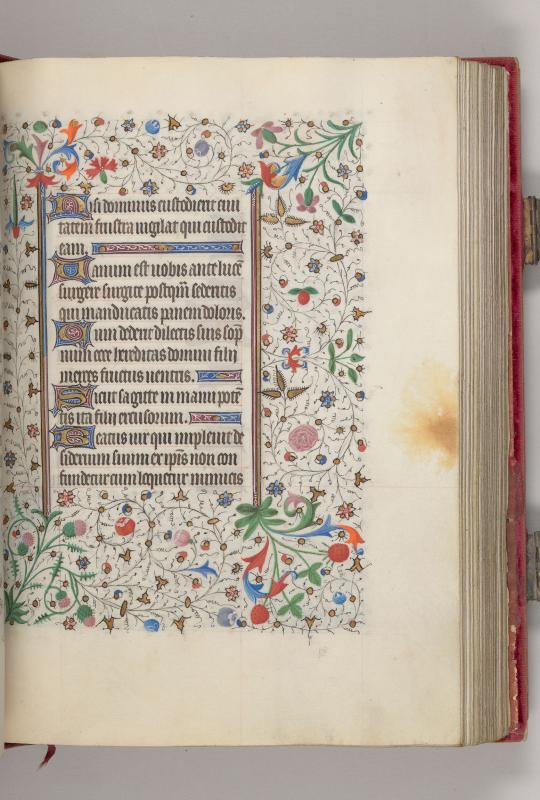 Nisi dominus custodierit civi
tatem frustra vigilat qui custodit
eam.
Vanum est vobis ante lucē
surgere surgite postq̄m sederitis
qui manducatis panem doloris.
Cum dederit dilectis suis sop̄
num ecce hereditas domini filii
merces fructus ventris.
Sicut sagitte in manu potē
tis ita filii excussorum.
Beatus vir qui implevit de
siderium suum ex ip̄is non con
fundetur cum loquetur inimicis